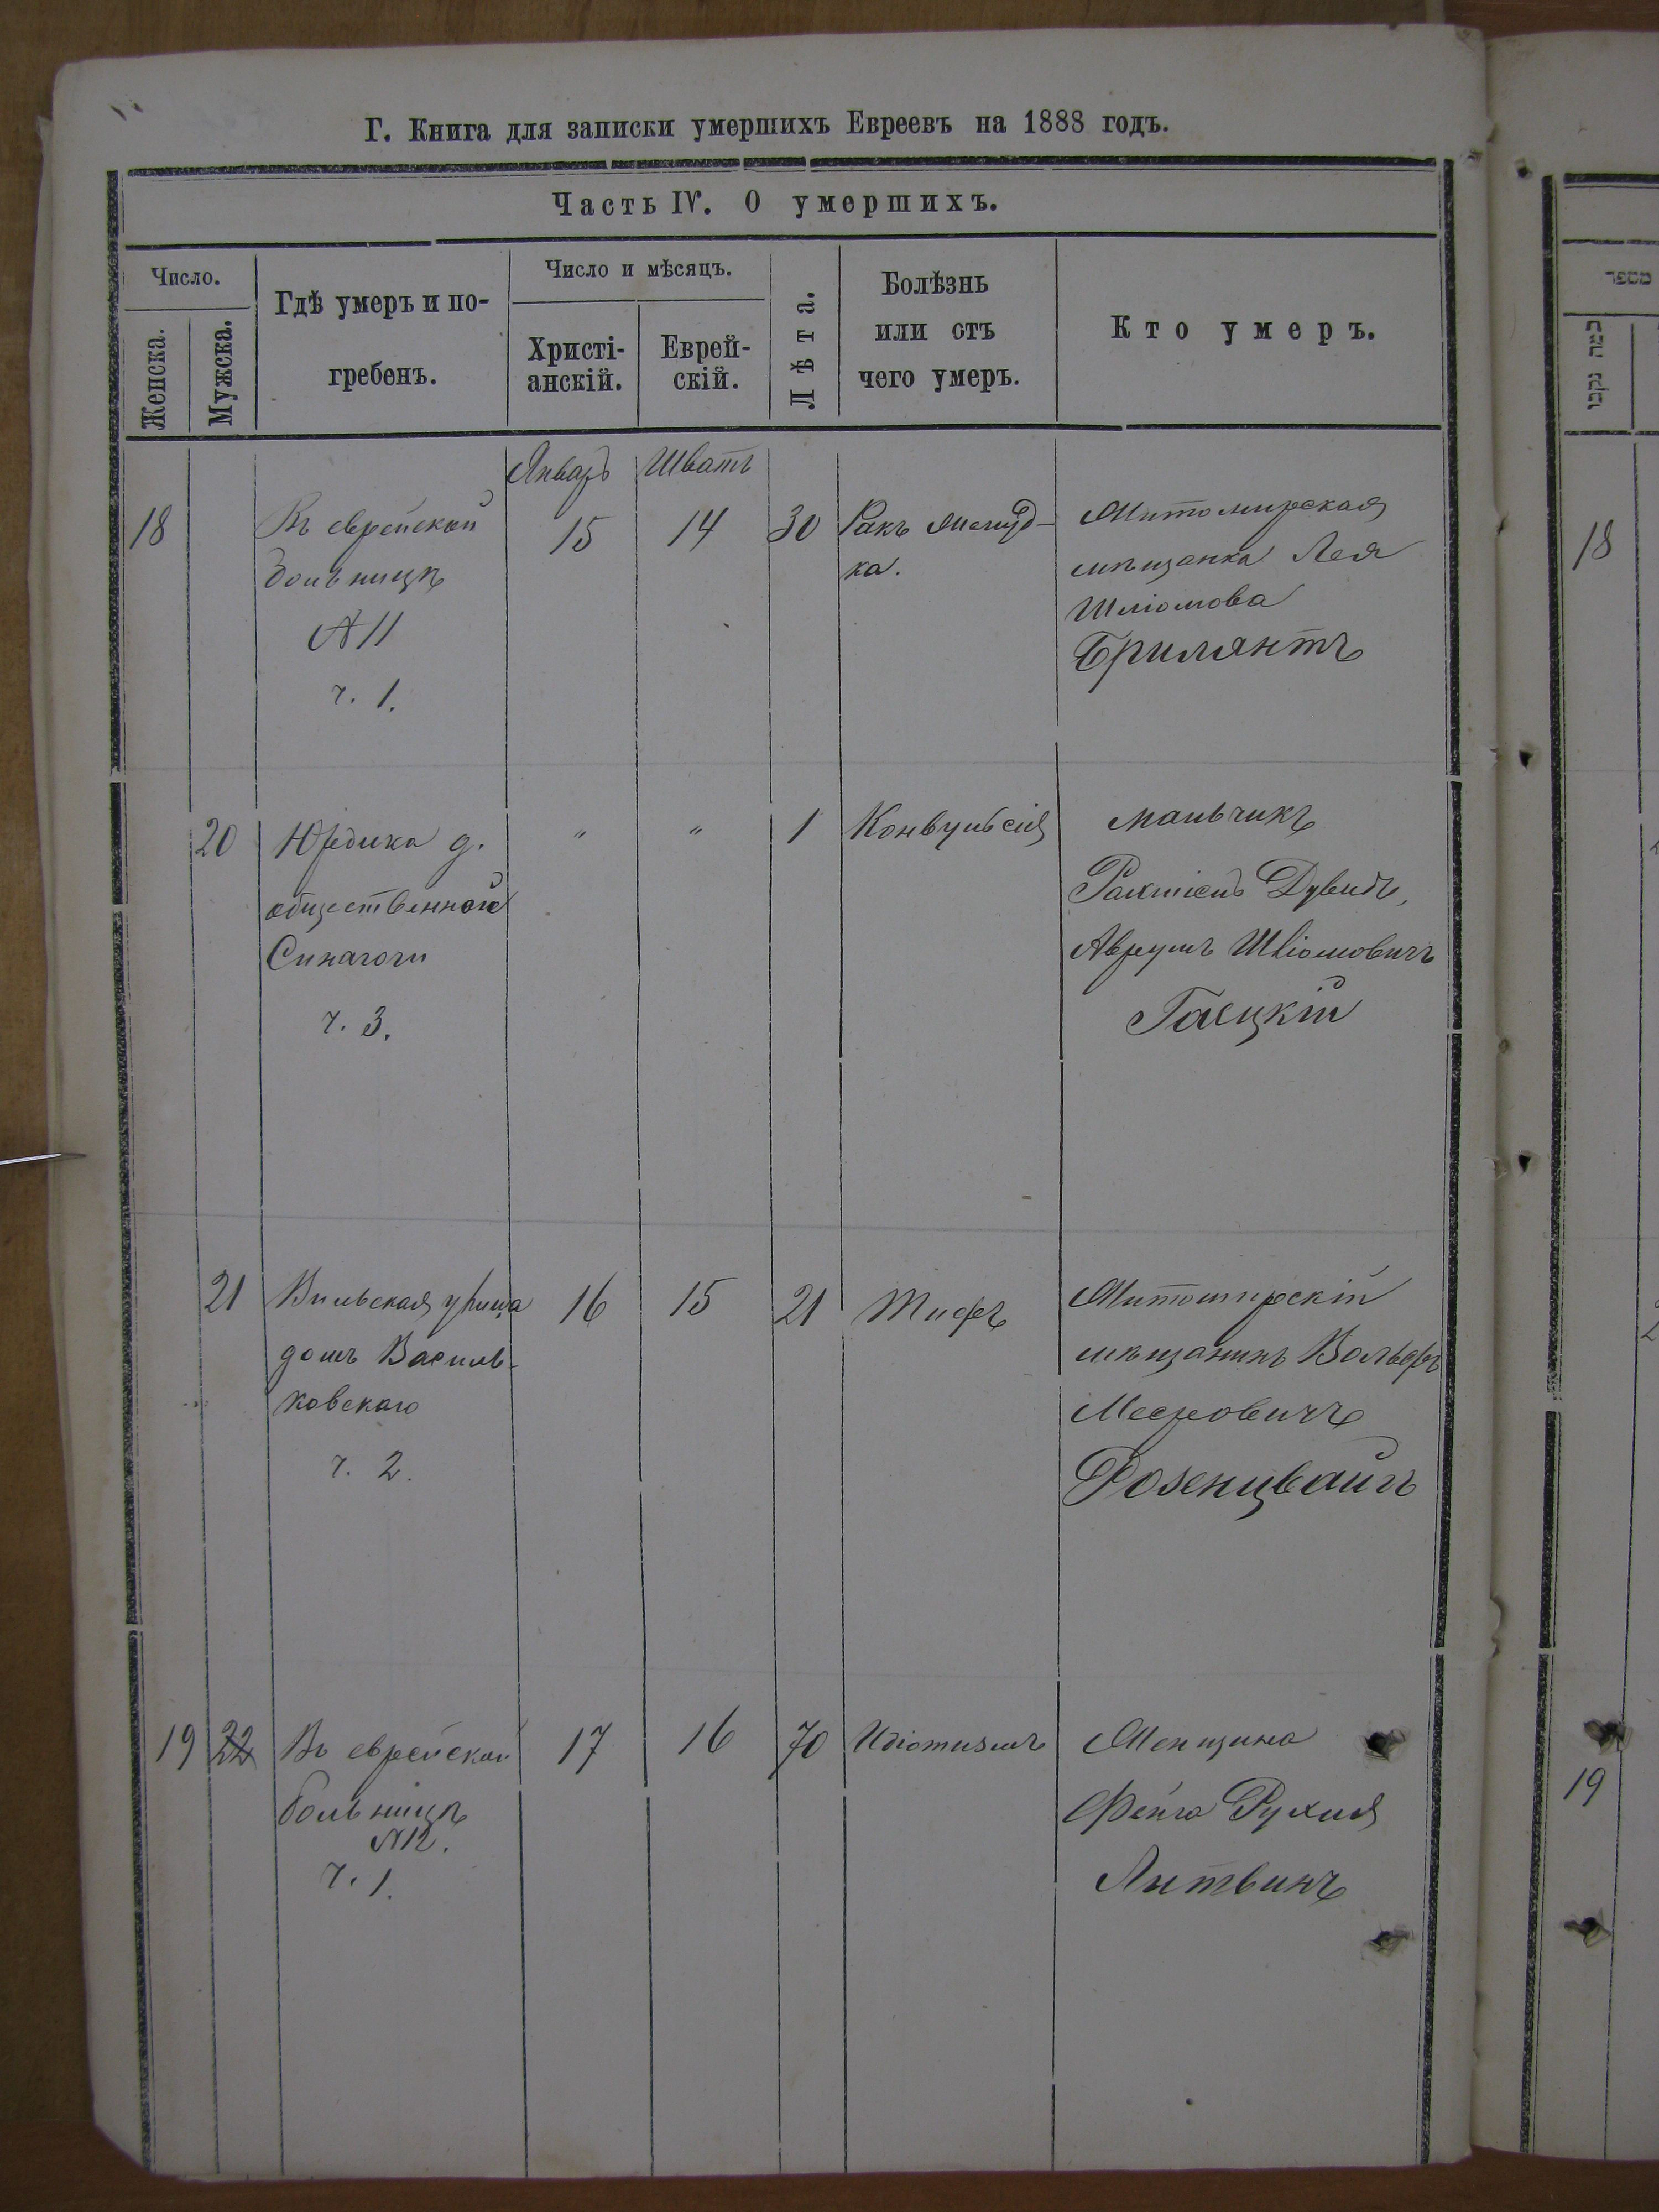 Г. Книга для записки умершихъ Евреевъ на 1888 годъ.
Часть IV. О умершихъ.
Число.
Женска.
Мужска.
Гдѣ умеръ и по-
гребенъ.
Число и мѣсяцъ.
Христі-
анскій.
Еврей-
скій.
Лѣта.
Болѣзнь
или отъ
чего умеръ.
Кто умеръ.
Январь
Шватъ
18
Въ еврейской
больницѣ
№ 11
ч. 1.
15
14
30
Ракъ желуд-
ка.
Житомирская
мѣщанка Лея
Шліомова
Брилянтъ
20
Юридика д.
общественной
Синагоги
ч. 3.
"
"
1
Конвульсія
мальчикъ
Дувидъ,
Аврумъ Шліомовичъ
21
Вильская улица
домъ Василь-
ковскаго
ч. 2.
16
15
21
Тифъ
Житомирскій
мѣщанинъ Вольфъ
Мееровичъ
Розенцвайгъ
19
22
Въ еврейской
больницѣ
№ 12.
ч. 1.
17
16
70
Идіотизмъ
Женщина
Фейга Рухля
Литвинъ
מספר
18
19